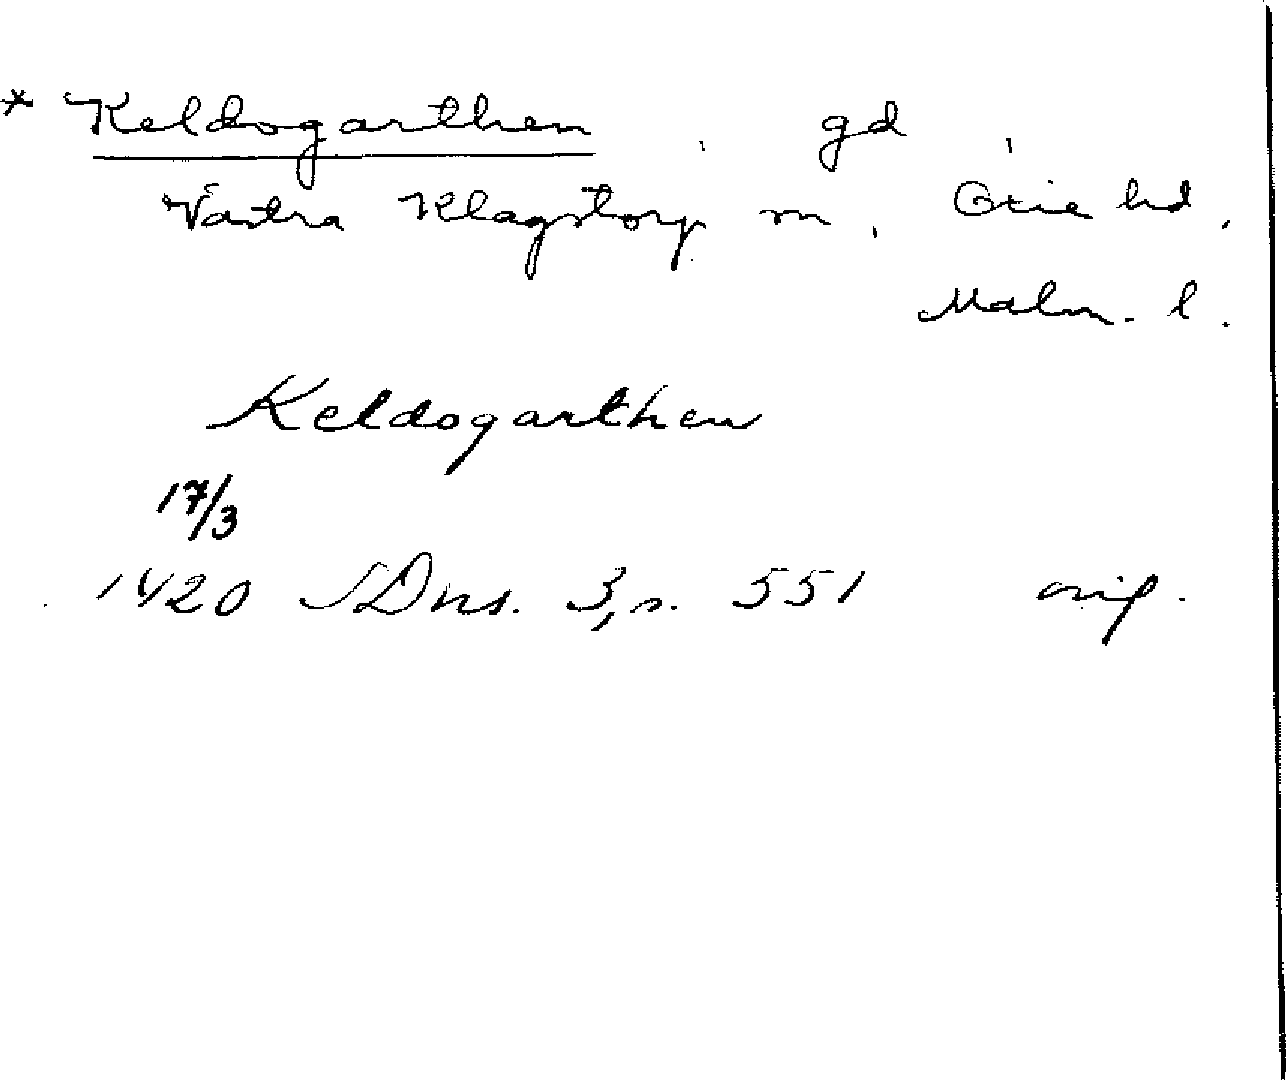 * Keldogarthen, gd,
Västra Klagstorp sn, Oxie hd,
Malm. l.
Keldogarthen
17/3
1420 SDns. 3, s. 551 orig.